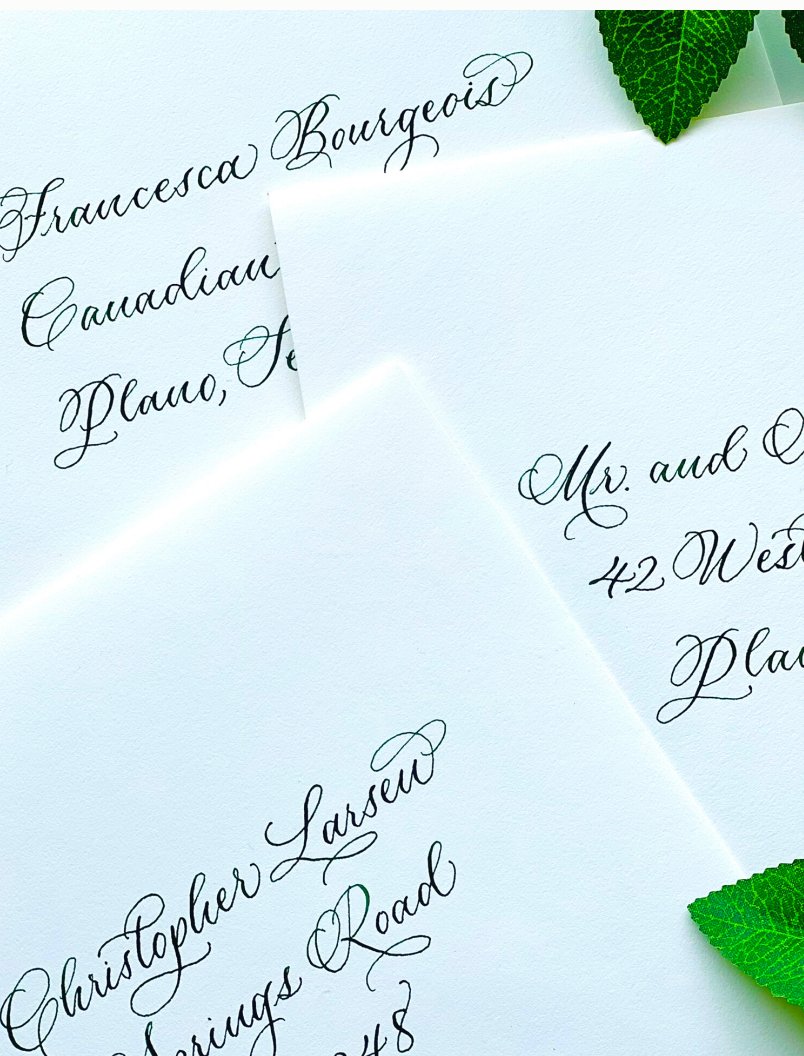 Francesca Bourgeois
Canadian
Plano,
Mr. and
42 West
Christopher Larsen
Springs Road
48